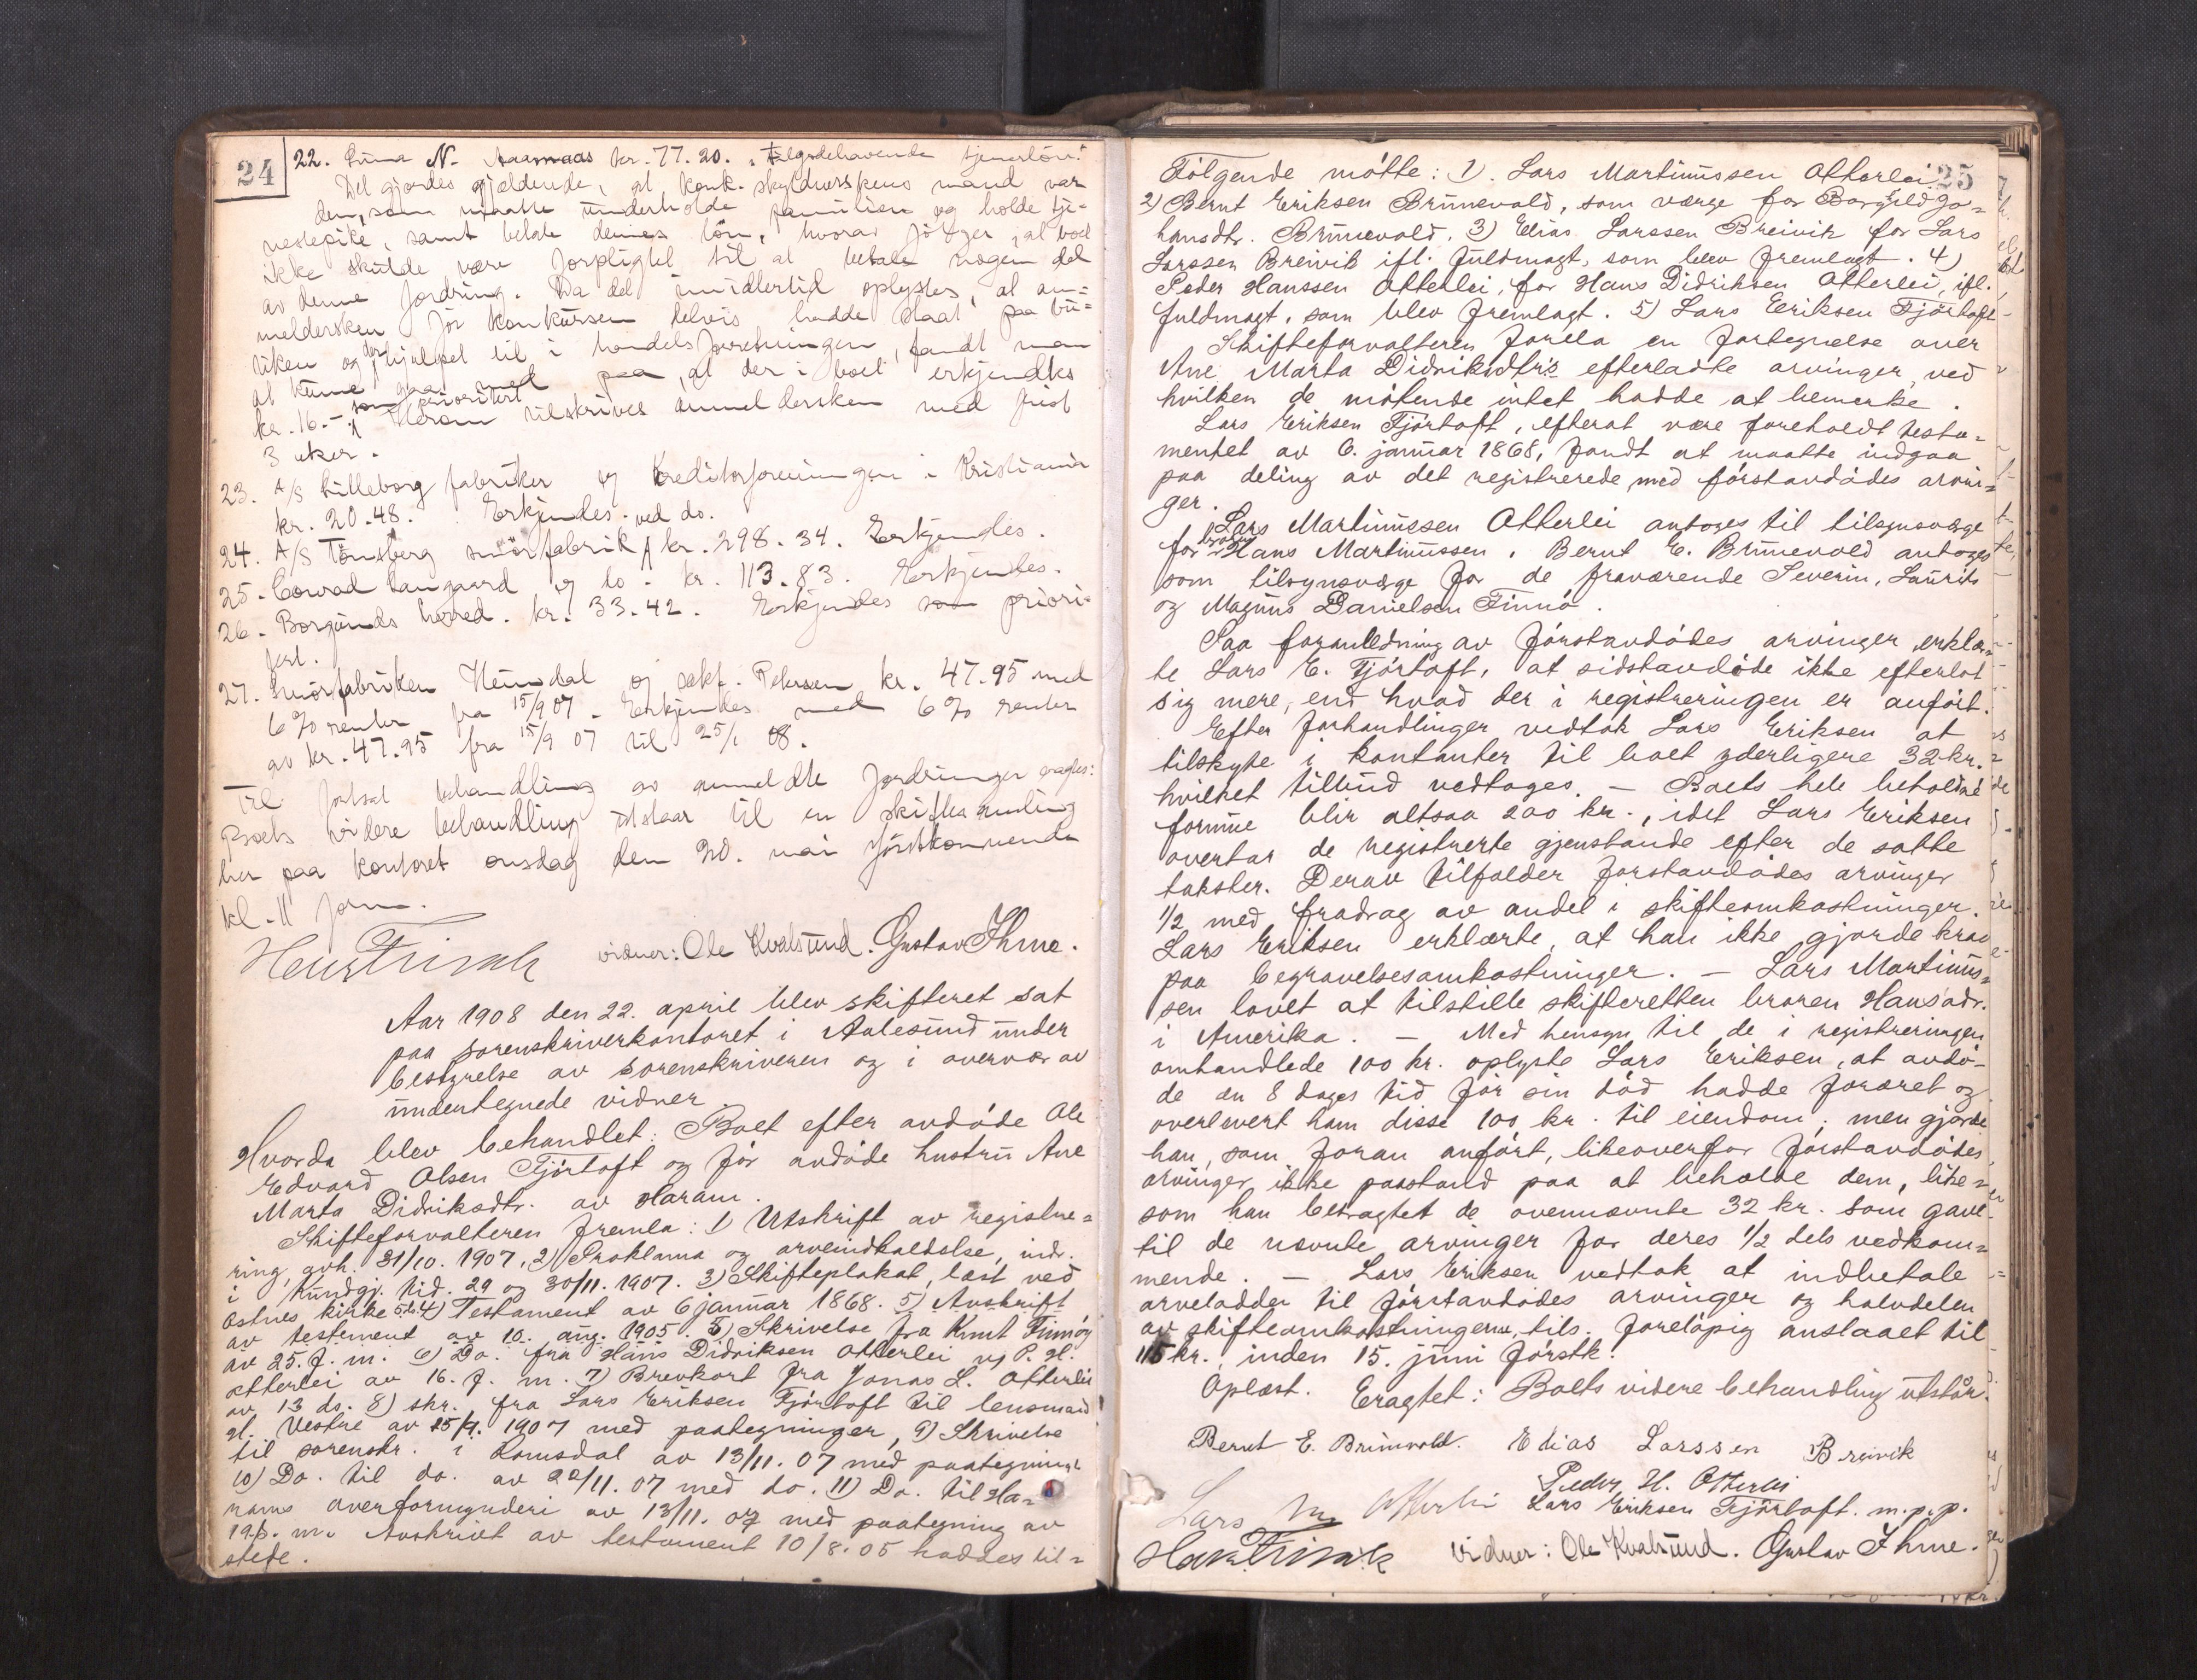 24
22. Lina N. Aarnaas kr. 77.20. tilgodehavende tjenerlön.
Det gjordes gjældende, at konk. skyldnerskens mand var
den, som maatte underholde familien og holde tje-
nestepike, samt betale dennes lön, hvorav fölger, at boet
ikke skulde være forpligtet til at betale nogen del
av denne fordring. Da det imidlertid oplystes, at an-
meldersken för konkursen delvis hadde staat paa bu-
tiken og der hjulpet til i handelsforretningen, fandt man
at kunne gaa med paa, at der i boet erkjendtes
kr. 16.- som prioritert. Herom tilskrives anmeldersken med frist
3 uker.
23. A/S Lilleborg fabriker og Kreditorforeningen i Kristiania
kr. 20.48. Erkjendes.
24. A/S Tönsberg smörfabrik ved do. kr. 298.34. Erkjendes.
25. Conrad Langaard og do. kr. 113.83. Erkjendes.
26. Borgunds herred. kr. 33.42. Erkjendes som priori-
tert.
27. Smörfabriken Heimdal og sakf. Petersen kr. 47.95 med
6% renter fra 15/9 07. Erkjendes med 6% renter
av kr. 47.95 fra 15/9 07 til 25/1 08.
Til fortsat behandling av anmeldte fordringer
Boets videre behandling utstaar til en skiftesamling
her paa kontoret onsdag den 20. mai förstkommende
kl. 11 form.
Hans Frisak vidner: Ole Kvalsund. Gustav Ihme.
Aar 1908 den 22. april blev skifteret sat
paa sorenskriverkontoret i Aalesund under
bestyrelse av sorenskriveren og i overvær av
undertegnede vidner.
Hvorda blev behandlet: Boet efter avdöde Ole
Edvard Olsen Fjörtoft og för avdöde hustru Ane
Marta Didriksdtr. av Haram.
Skifteforvalteren fremla: 1) Utskrift av registre-
ring, avh. 31/10. 1907, 2) Proklama og arveindkaldelse, indr.
i Kundgj. tid. 29 og 30/11. 1907. 3) Skifteplakat, læst ved
Østnes kirke 4) Testament av 6 januar 1868. 5) Avskrift
av testement av 10. aug. 1905. 5) Skrivelse fra Knut Finnöy
av 25. f. m. 6) Do. fra Hans Didriksen Otterlei v/ P. H.
Otterlei av 16. f. m. 7) Brevkort fra Jonas L. Otterlei
av 13 ds. 8) skr. fra Lars Eriksen Fjörtoft til lensmand
H. Vestre av 15/9. 1907 med paategninger, 9) Skrivelse
til sorenskr. i Romsdal av 13/11. 07 med paategning
10) Do. til do. av 22/11. 07 med do. 11) Do. til Ha-
rams overformynderi av 13/11. 07 med paategning av
19.d. m. Avskrivt av testament 10/8. 05 haddes til-
stede.
25
Følgende mötte: 1). Lars Martinussen Otterlei
2) Bernt Eriksen Brunevold, som værge for Borghild Jo-
hansdtr. Brunevold. 3) Elias Larssen Breivik for Lars
Larssen Breivik ifl. fuldmagt, som blev fremlagt. 4)
Peder Hanssen Otterlei, for Hans Didriksen Otterlei, ifl.
fuldmagt, som blev fremlagt. 5) Lars Eriksen Fjörtoft
Skifteforvalteren forela en fortegnelse over
Ane Marta Didriksdtr's efterladte arvinger, ved
hvilken de mötende intet hadde at bemerke.
Lars Eriksen Fjörtoft, efterat være foreholdt testa-
mentet av 6. januar 1868, fandt at maatte indgaa
paa deling av det registrerede med förstavdödes arvin-
ger.
Lars Martinussen Otterlei antoges til tilsynsværge
for broren Hans Martinussen. Bernt E. Brunevold antoges
som tilsynsværge for de fraværende Severin, Laurits
og Magnus Danielsen Finnö.
Paa foranledning av förstavdödes arvinger erklær-
te Lars E. Fjörtoft, at sidstavdöde ikke efterlot
sig mere, end hvad der i registreringen er anfört.
Efter forhandlinger vedtok Lars Eriksen at
tilskyte i kontanter til boet yderligere 32 kr.
hvilket tilbud vedtoges. — Boets hele beholdne
formue blir altsaa 200 kr., idet Lars Eriksen
overtar de registrerte gjenstande efter de satte
takster. Derav tilfalder förstavdödes arvinger
1/2 med fradrag av andel i skifteomkostninger.
Lars Eriksen erklærte, at han ikke gjorde krav
paa begravelsesomkostninger. — Lars Martinus-
sen lovet at tilstille skifteretten broren Hans' adr.
i Amerika. — Med hensyn til de i registreringen
omhandlede 100 kr. oplyste Lars Eriksen, at avdö-
de en 8 dages tid för sin död hadde foræret og
overlevert ham disse 100 kr. til eiendom; men gjorde
han, som foran anfört, likeoverfor förstavdödes
arvinger ikke paastand paa at beholde dem, like-
som han betragtet de ovennævnte 32 kr. som gave
til de nævnte arvinger for deres 1/2 dels vedkom-
mende. — Lars Eriksen vedtok at indbetale
arvelodder til förstavdödes arvinger og halvdelen
av skifteomkostningerne, tils. forelöpig anslaaet til
115 kr., inden 15. juni förstk.
Oplæst. Eragtet: Boets videre behandling utstår.
Bernt E. Brunevold. Elias Larssen Breivik
Peder H. Otterlei
Lars M Otterlei Lars Eriksen Fjörtoft. m.p.p.
Hans Frisak vidner: Ole Kvalsund. Gustav Ihme.